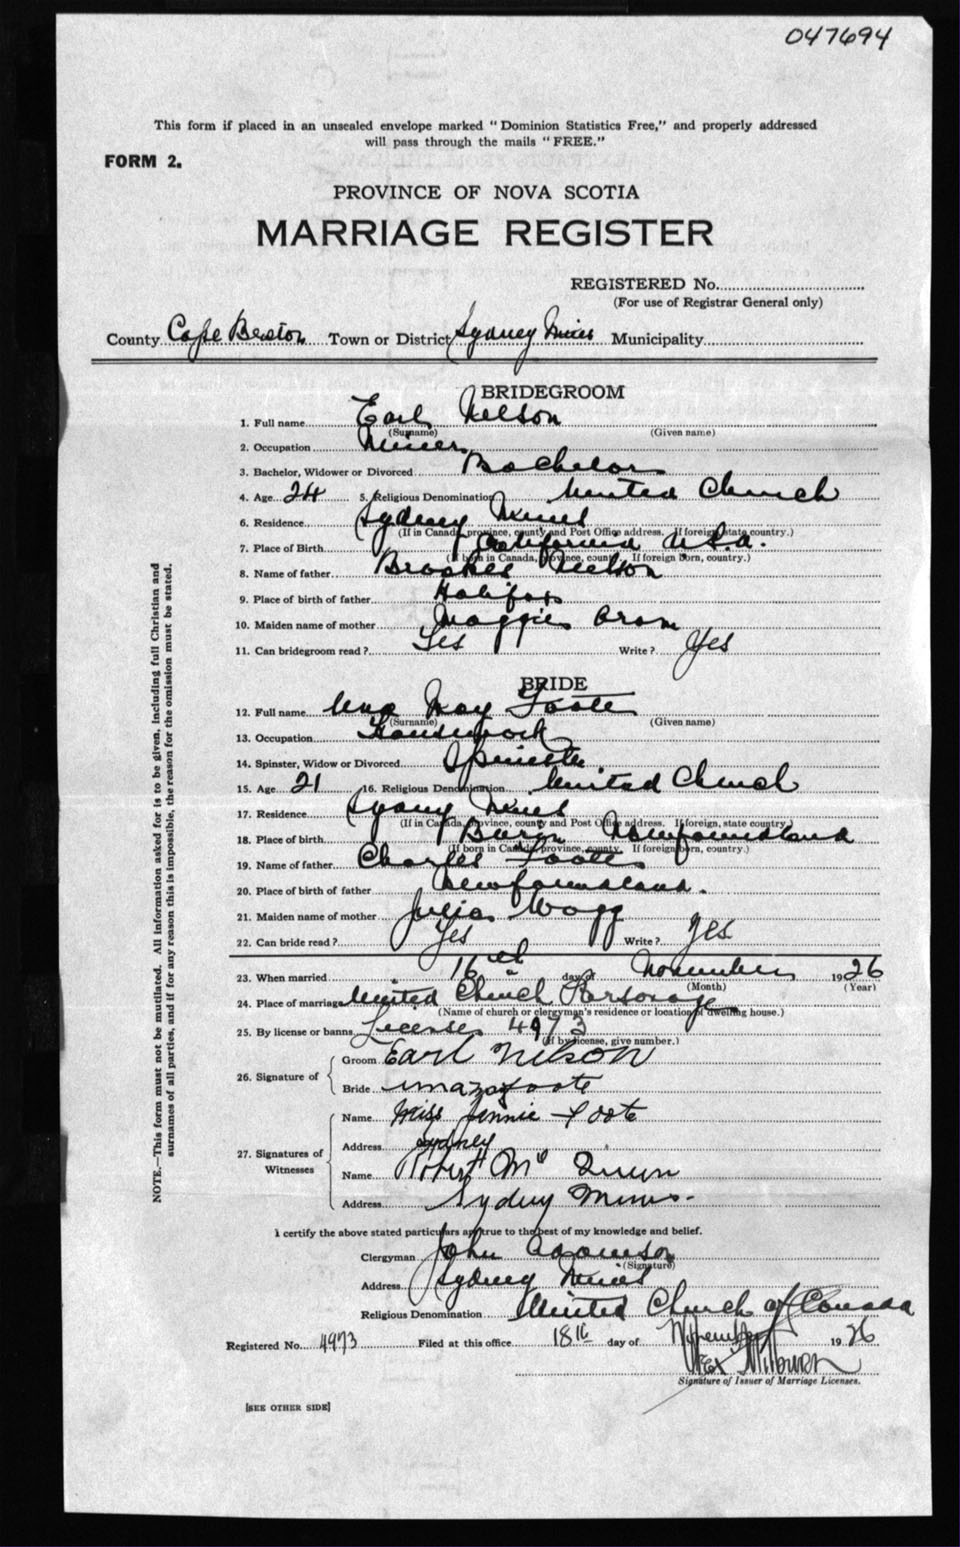 047694
This form if placed in an unsealed envelope marked “Dominion Statistics Free,” and properly addressed
will pass through the mails “FREE.”
FORM 2.
PROVINCE OF NOVA SCOTIA
MARRIAGE REGISTER
REGISTERED No.
(For use of Registrar General only)
County Cape Breton Town or District Sydney Mines Municipality
BRIDEGROOM
1. Full name Earl Nelson
(Surname) (Given name)
2. Occupation Miner
3. Bachelor, Widower or Divorced Bachelor
4. Age 24 5. Religious Denomination United Church
6. Residence Sydney Mines
(If in Canada, province, county and Post Office address. If foreign, state country.)
7. Place of Birth California U.S.A.
(If born in Canada, province, county. If foreign born, country.)
8. Name of father Brookes Nelson
9. Place of birth of father Halifax
10. Maiden name of mother Maggie Oram
11. Can bridegroom read? Yes Write? Yes
BRIDE
12. Full name Una May Foote
(Surname) (Given name)
13. Occupation Housework
14. Spinster, Widow or Divorced Spinster
15. Age 21 16. Religious Denomination United Church
17. Residence Sydney Mines
(If in Canada, province, county and Post Office address. If foreign, state country.)
18. Place of birth Burin Newfoundland
(If born in Canada, province, county. If foreign born, country.)
19. Name of father Charles Foote
20. Place of birth of father Newfoundland.
21. Maiden name of mother Julia Wagg
22. Can bride read? Yes Write? Yes
23. When married 16th day of November 1926
(Month) (Year)
24. Place of marriage United Church Parsonage
(Name of church or clergyman's residence or location of dwelling house.)
25. By license or banns License 4973
(If by license, give number.)
26. Signature of Groom Earl Nelson
Bride Una May Foote
27. Signatures of Witnesses Name Miss Jennie Foote
Address Sydney
Name Robert Mc
Address Sydney Mines.
I certify the above stated particulars are true to the best of my knowledge and belief.
Clergyman John Adamson
(Signature)
Address Sydney Mines
Religious Denomination United Church of Canada
Registered No. 4973 Filed at this office 18th day of November 1926
Alex Milburn
Signature of Issuer of Marriage Licenses.
[SEE OTHER SIDE]
NOTE.—This form must not be mutilated. All information asked for is to be given, including full Christian and
surnames of all parties, and if for any reason this is impossible, the reason for the omission must be stated.